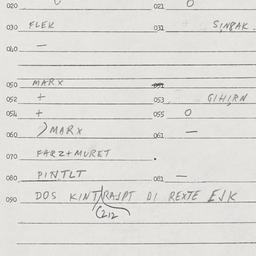 020 0 021 0
030 FLEK 031 SINPAK.
040 —
050 MARX 051
052 + 053. GIHIRN
054 + 055 0
060 ) MARX 061 —
070 FARZ+MURET .
080 PINTLT 081 —
090 DOS KINT/RAIPT DI REXTE EJK
(212